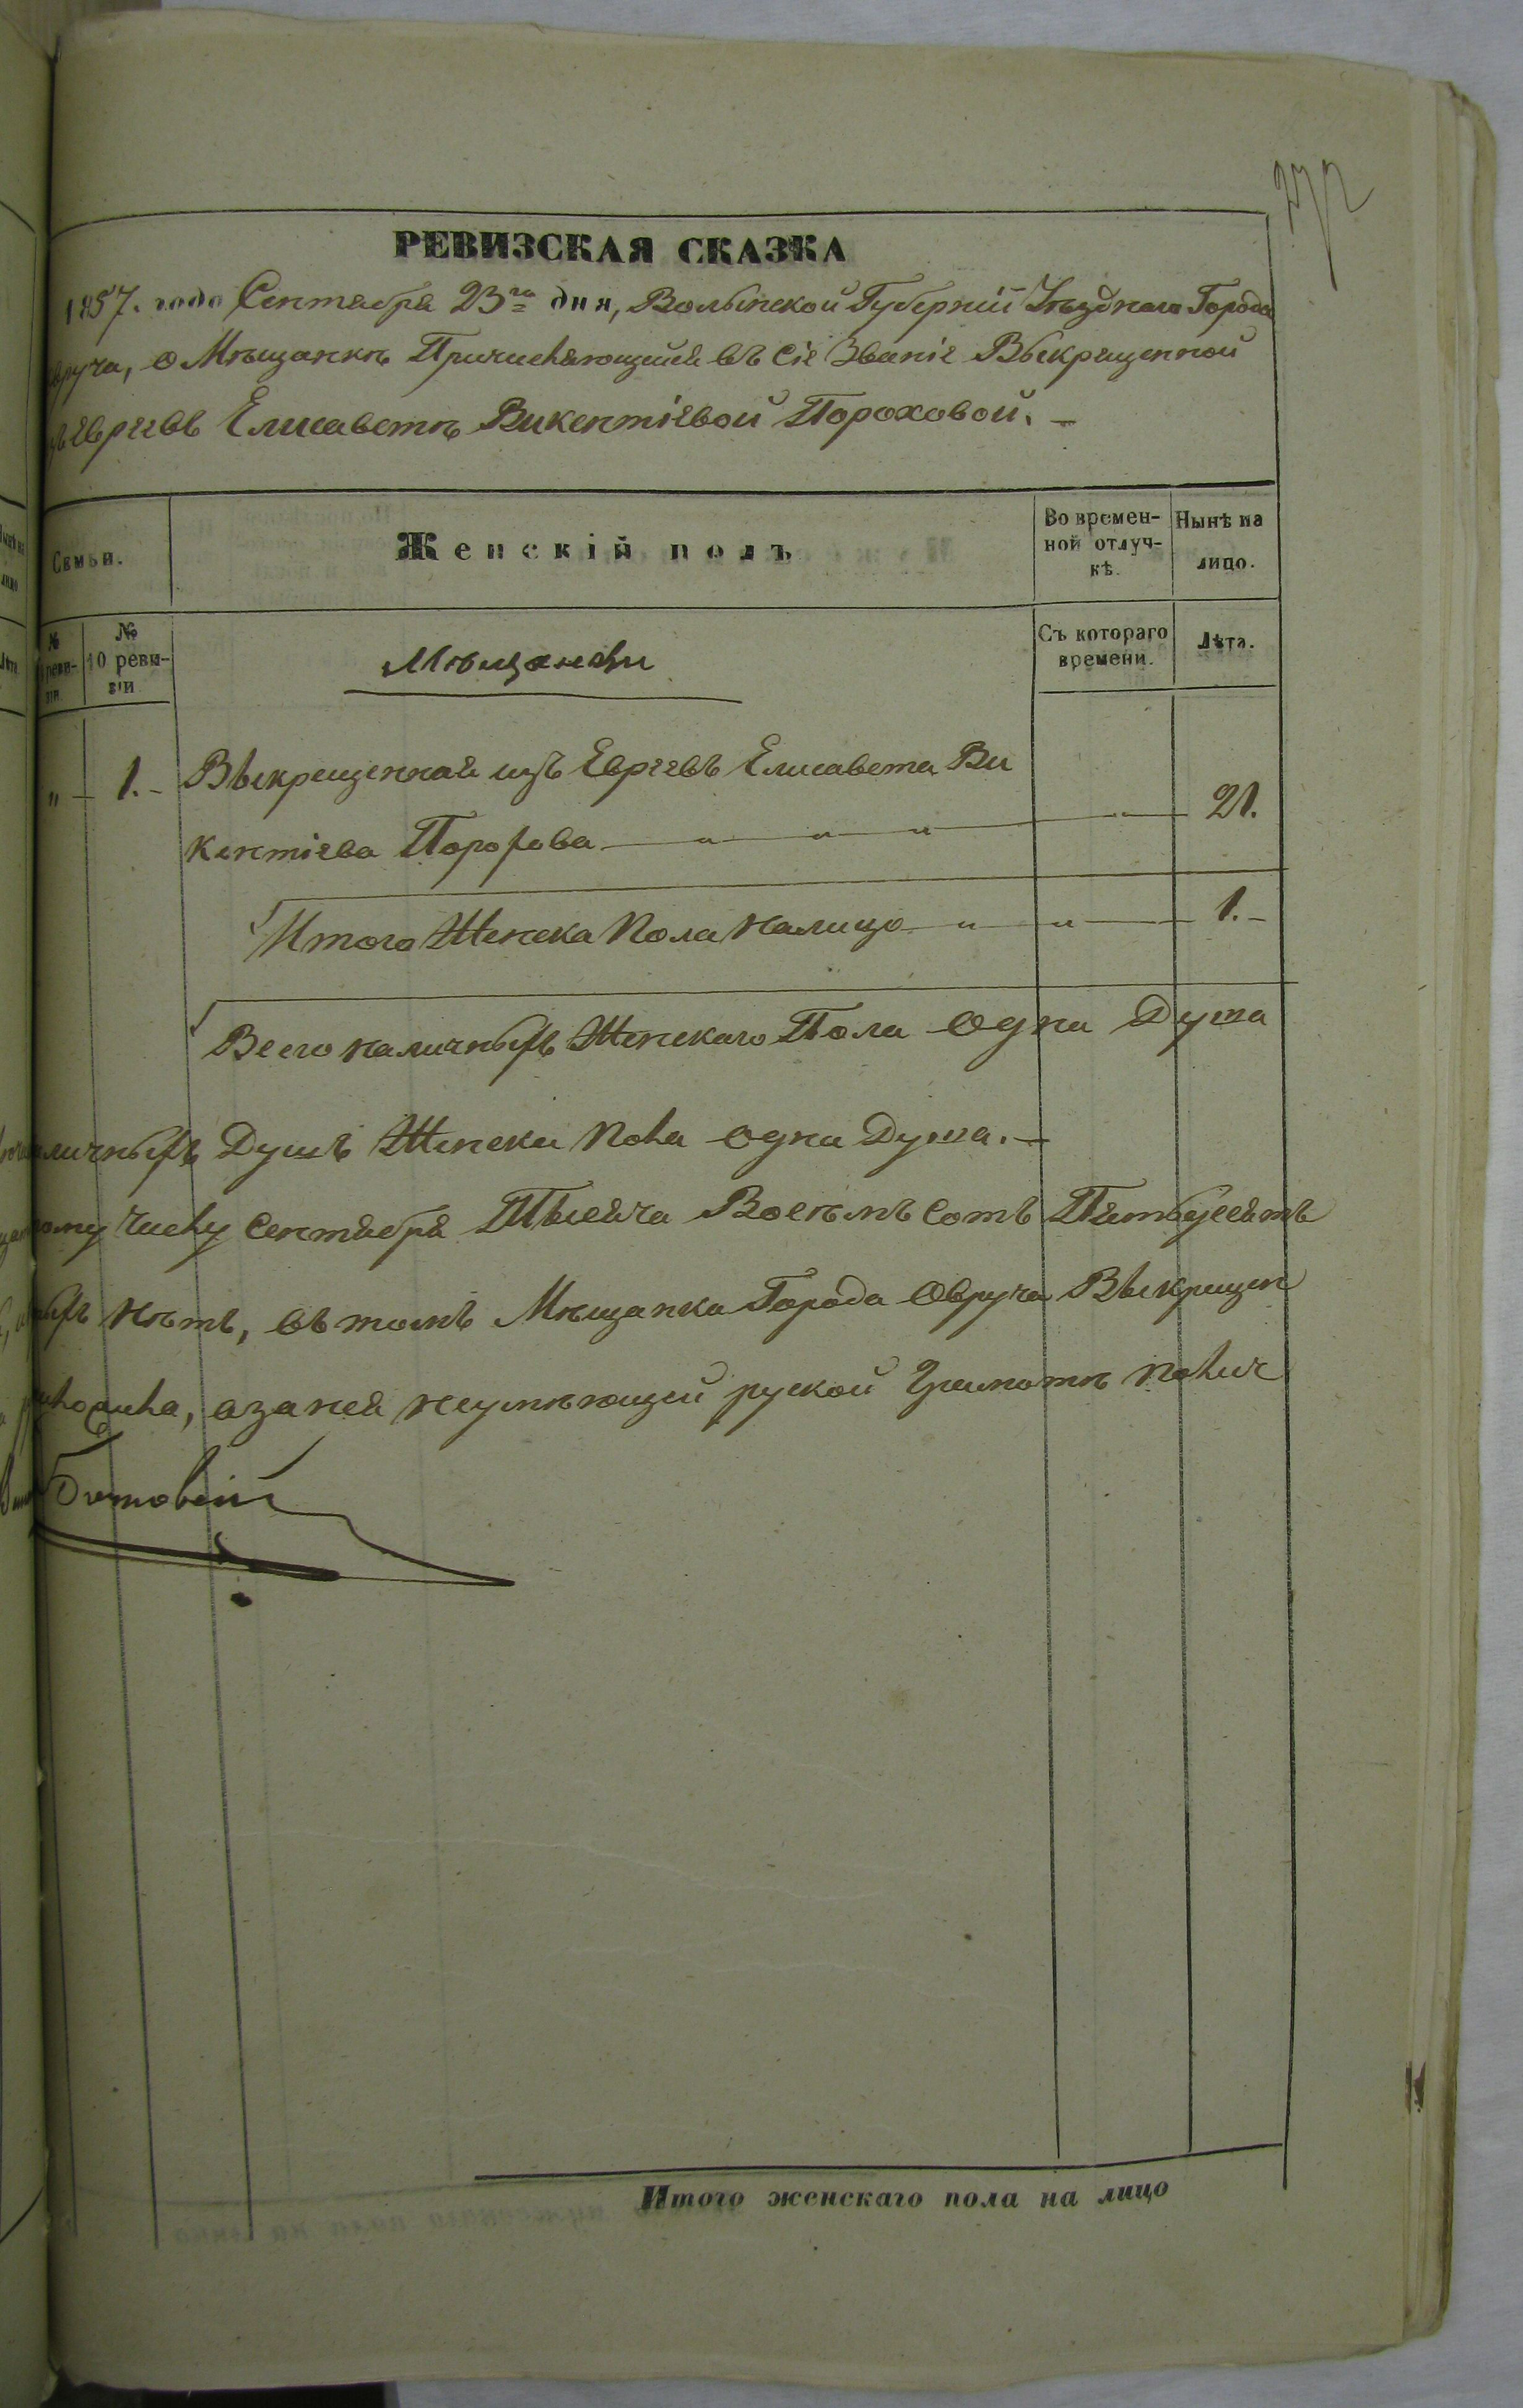 РЕВИЗСКАЯ СКАЗКА
1857. года Сентября 23го дня, Волынской Губерніи Уѣзднаго Города
вруча, о Мѣщанкѣ Причисляющейся въ сіе Званіе Выкрещенной
Евреевъ Елисаветѣ Викентіевой Пороховой. —
Семьи.
Женскій полъ
Во времен-
ной отлуч-
кѣ.
Нынѣ на
лицо.
№
реви-
зіи
№
10 реви-
зіи
Мѣщанки
Съ котораго
времени.
Лѣта.
" — 1. — Выкрещенная изъ Евреевъ Елисавета Ви
кентіева Порохова — " — " — " — " — 21.
Итого Женска Пола налицо — " — " — 1. —
Всего наличныхъ Женскаго Пола Одна Душа
личныхъ Душъ Женска пола одна Душа. —
ому числу Сентября Тысяча Восемъ Сотъ Пятьдесятъ
нѣтъ, въ томъ Мѣщанка Города Овруча Выкрещен
, а за нея неумѣющей руской Грамотѣ полич
Итого женскаго пола на лицо